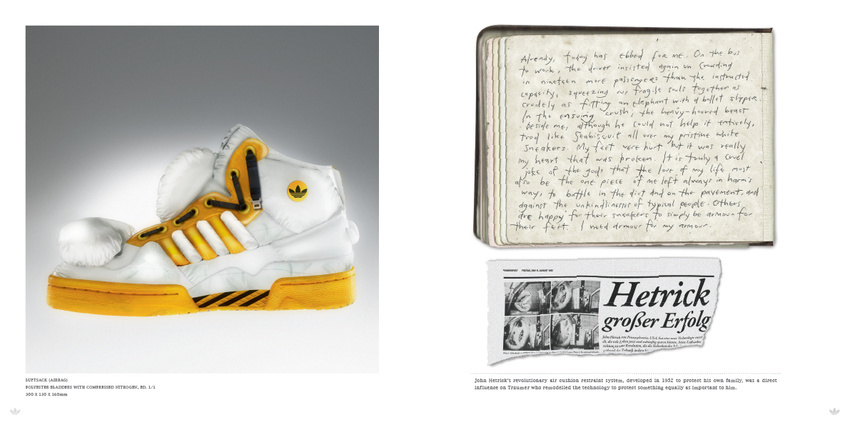 LUFTSACK (AIRBAG)
POLYESTER BLADDERS WITH COMPRESSED NITROGEN, ED. 1/1
300 X 130 X 160mm
Already, today has ebbed for me. On the bus
to work, the driver insisted again on crowding
in nineteen more passengers than the instructed
capacity, squeezing our fragile souls together as
crudely as fitting an elephant with a ballet slipper.
In the ensuing crush, the heavy-hooved beast
beside me, although he could not help it entirely,
trod like Seabiscuit all over my pristine white
sneakers. My feet were hurt but it was really
my heart that was broken. It is truly a cruel
joke of the gods that the love of my life must
also be the one piece of me left always in harm's
way, to battle in the dirt and on the pavement, and
against the unkindliness of typical people. Others
are happy for their sneakers to simply be armour for
their feet. I need armour for my armour.
Hetrick
großer Erfolg
John Hetrick's revolutionary air cushion restraint system, developed in 1952 to protect his own family, was a direct
influence on Träumer who remodelled the technology to protect something equally as important to him.